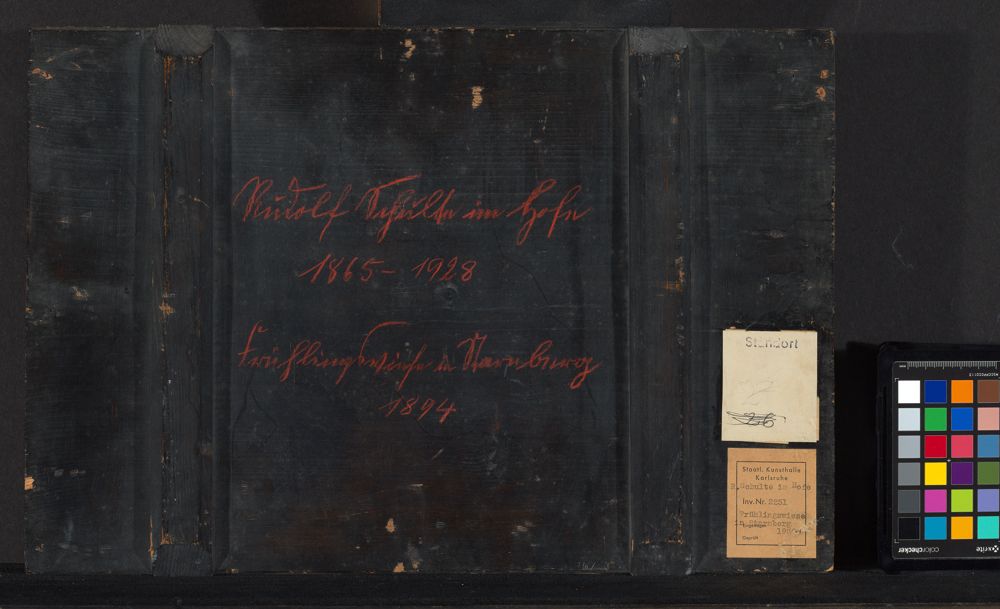 Rudolf Schulte im Hofe
1865 - 1928
Frühlingswiese in Starnberg
1894
Standort
26
Staatl. Kunsthalle
Karlsruhe
R. Schulte im Hofe
Inv. Nr. 2251
Frühlingswiese
in Starnberg
Geprüft
colorchecker
x-rite